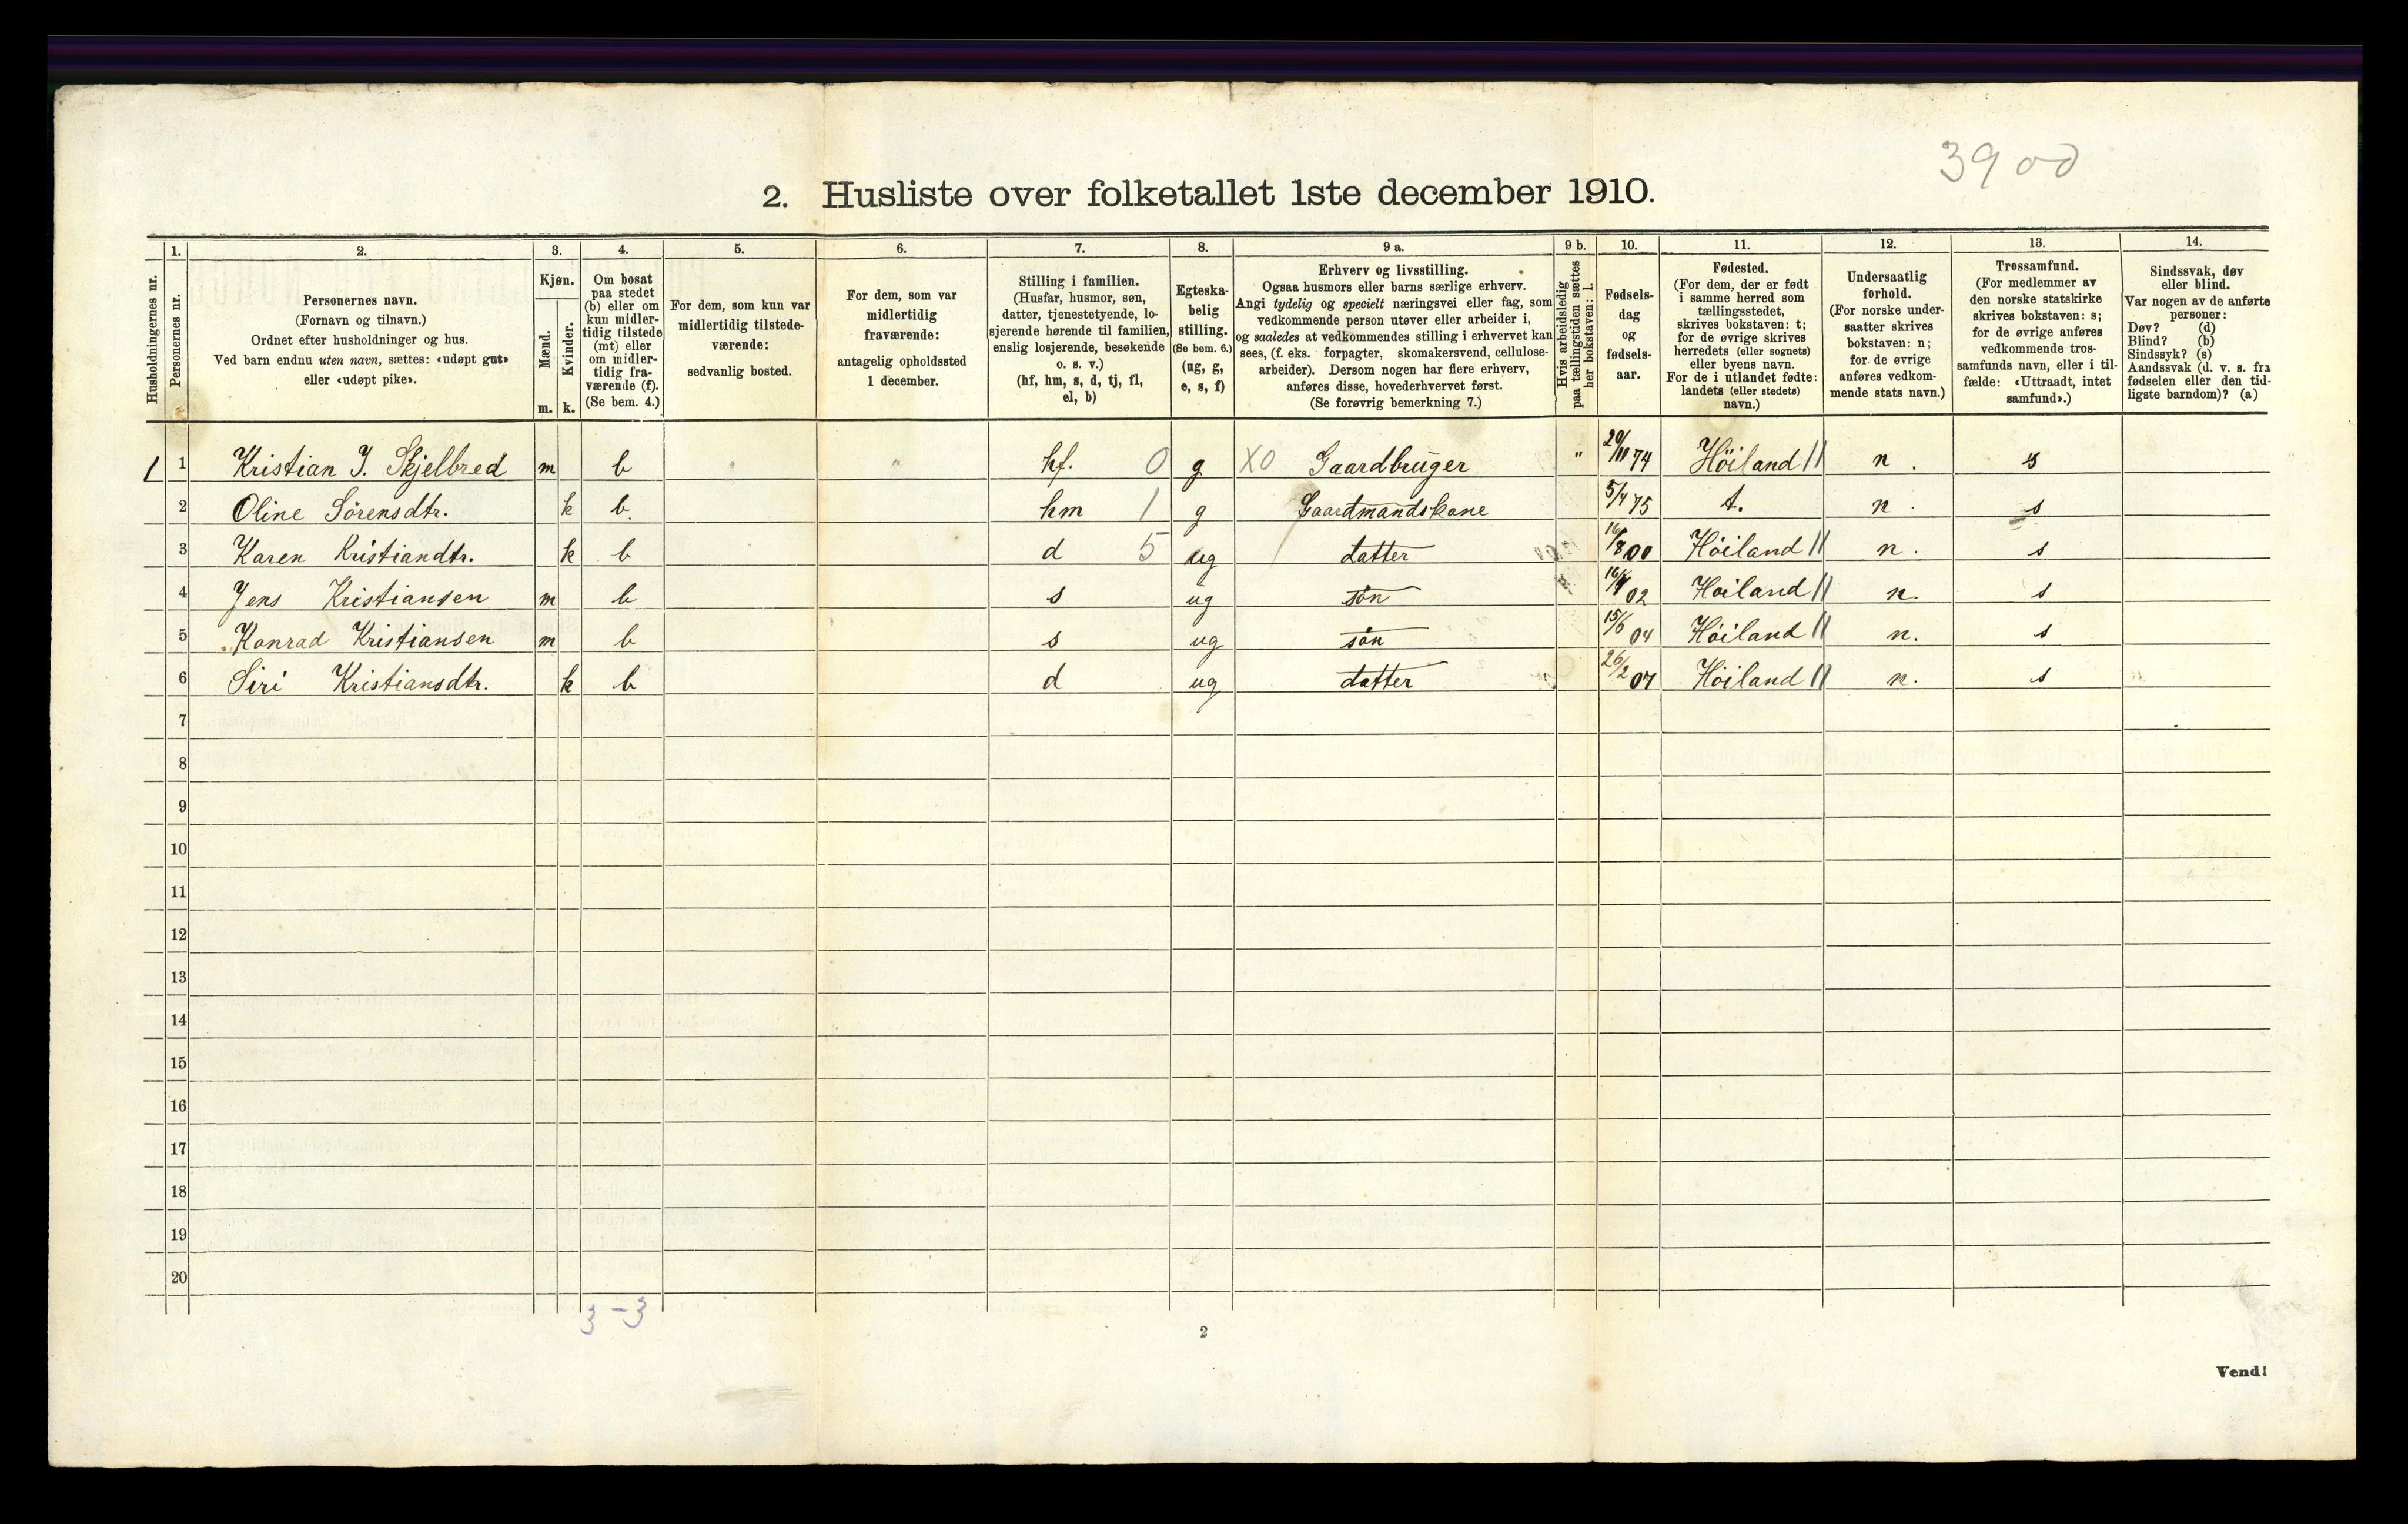 3900
2. Husliste over folketallet 1ste december 1910.
Husholdningernes nr.
1.
Personernes nr.
2.
Personernes navn.
(Fornavn og tilnavn.)
Ordnet efter husholdninger og hus.
Ved barn endnu uten navn, sættes: «udøpt gut»
eller «udøpt pike».
3.
Kjøn.
Mænd.
Kvinder.
m. k.
4.
Om bosat
paa stedet
(b) eller om
kun midler-
tidig tilstede
(mt) eller
om midler-
tidig fra-
værende (f).
(Se bem. 4.)
5.
For dem, som kun var
midlertidig tilstede-
værende:
sedvanlig bosted.
6.
For dem, som var
midlertidig
fraværende:
antagelig opholdssted
1 december.
7.
Stilling i familien.
(Husfar, husmor, søn,
datter, tjenestetyende, lo-
sjerende hørende til familien,
enslig losjerende, besøkende
o. s. v.)
(hf, hm, s, d, tj, fl,
el, b)
8.
Egteska-
belig
stilling.
(Se bem. 6.)
(ug, g,
e, s, f)
9 a.
Erhverv og livsstilling.
Ogsaa husmors eller barns særlige erhverv.
Angi tydelig og specielt næringsvei eller fag, som
vedkommende person utøver eller arbeider i,
og saaledes at vedkommendes stilling i erhvervet kan
sees, (f. eks. forpagter, skomakersvend, cellulose-
arbeider). Dersom nogen har flere erhverv,
anføres disse, hovederhvervet først.
(Se forøvrig bemerkning 7.)
9 b.
Hvis arbeidsledig
paa tællingstiden sættes
her bokstaven: l.
10.
Fødsels-
dag
og
fødsels-
aar.
11.
Fødested.
(For dem, der er født
i samme herred som
tællingsstedet,
skrives bokstaven: t;
for de øvrige skrives
herredets (eller sognets)
eller byens navn.
For de i utlandet fødte:
landets (eller stedets)
navn.)
12.
Undersaatlig
forhold.
(For norske under-
saatter skrives
bokstaven: n;
for de øvrige
anføres vedkom-
mende stats navn.)
13.
Trossamfund.
(For medlemmer av
den norske statskirke
skrives bokstaven: s;
for de øvrige anføres
vedkommende tros-
samfunds navn, eller i til-
fælde: «Uttraadt, intet
samfund».)
14.
Sindssvak, døv
eller blind.
Var nogen av de anførte
personer:
Døv? (d)
Blind? (b)
Sindssyk? (s)
Aandssvak (d. v. s. fra
fødselen eller den tid-
ligste barndom)? (a)
1 1 Kristian J. Skjelbred m b hf. 0 g X0 Gaardbruger " 29/11 74 Höiland || n. s
2 Oline Sörensdtr. k b. hm 1 g Gaardmandskone 5/4 75 t. n. s
3 Karen Kristiandtr. k b d 5 ug datter 16/8 00 Höiland || n. s
4 Jens Kristiansen m b s ug sön 02 Höiland || n. s
5 Konrad Kristiansen m b s ug sön 15/6 04 Höiland || n. s
6 Siri Kristiansdtr. k b d ug datter 26/2 07 Höiland || n. s
7
8
9
10
11
12
13
14
15
16
17
18
19
20
3 - 3
2
Vend!